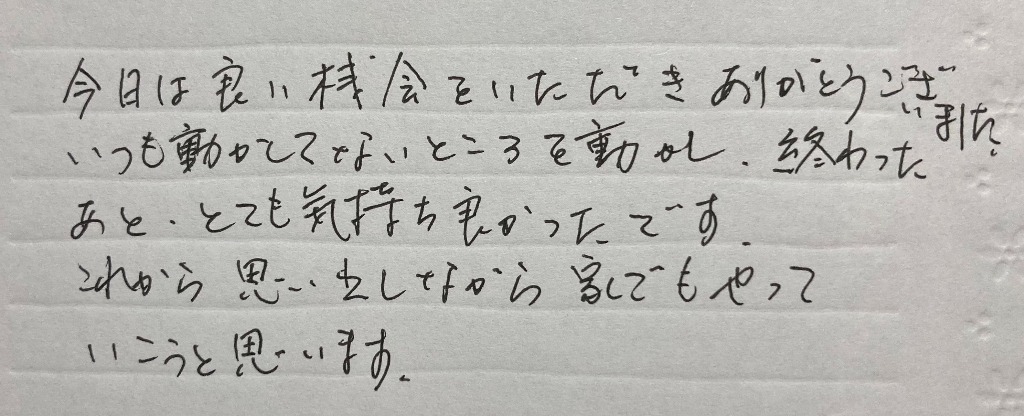 今日は良い機会をいただきありがとうございました。
いつも動かしてないところを動かし、終わった
あと、とても気持ち良かったです。
これから思い出しながら家でもやって
いこうと思います。